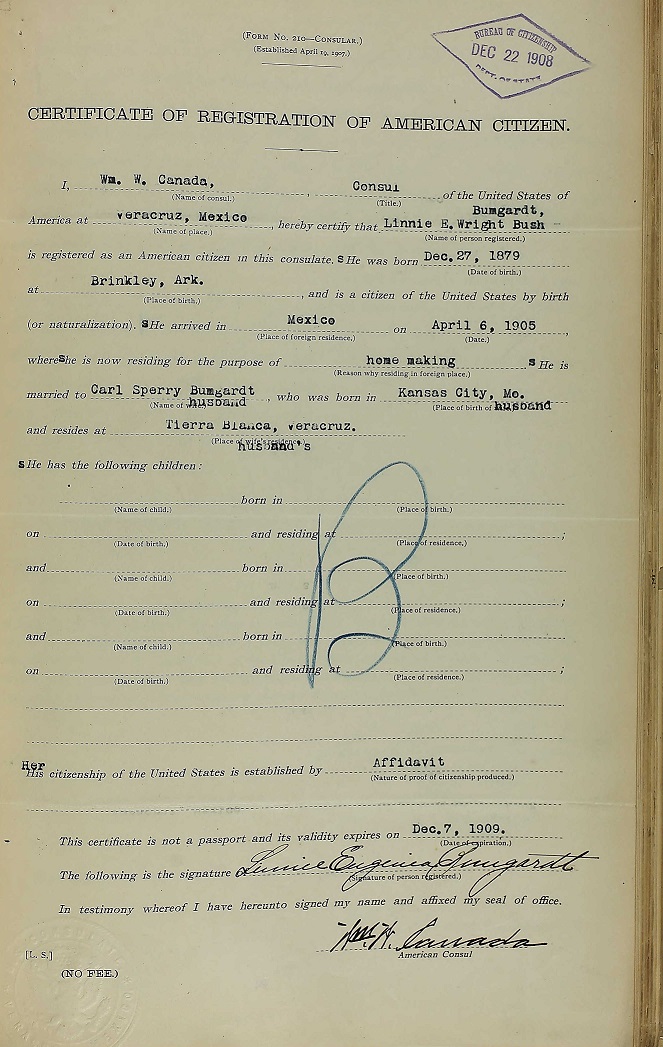 (FORM NO. 210—CONSULAR.)
(Established April 19, 1907.)
BUREAU OF CITIZENSHIP
DEC 22 1908
DEPT. OF STATE
CERTIFICATE OF REGISTRATION OF AMERICAN CITIZEN.
I, Wm. W. Canada, Consul of the United States of
(Name of consul.) (Title.)
Bumgardt,
America at Veracruz, Mexico, hereby certify that Linnie E. Wright Bush
(Name of place.) (Name of person registered.)
is registered as an American citizen in this consulate. sHe was born Dec. 27, 1879
(Date of birth.)
at Brinkley, Ark., and is a citizen of the United States by birth
(Place of birth.)
(or naturalization). sHe arrived in Mexico on April 6, 1905,
(Place of foreign residence.) (Date.)
where she is now residing for the purpose of home making sHe is
(Reason why residing in foreign place.)
married to Carl Sperry Bumgardt, who was born in Kansas City, Mo.
(Name of wife.) husband (Place of birth of husband
and resides at Tierra Blanca, Veracruz.
(Place of wife's residence.)
husband's
sHe has the following children:
born in
(Name of child.) (Place of birth.)
on and residing at ;
(Date of birth.) (Place of residence.)
and born in
(Name of child.) (Place of birth.)
on and residing at ;
(Date of birth.) (Place of residence.)
and born in
(Name of child.) (Place of birth.)
on and residing at ;
(Date of birth.) (Place of residence.)
B
Her
His citizenship of the United States is established by Affidavit
(Nature of proof of citizenship produced.)
This certificate is not a passport and its validity expires on Dec. 7, 1909.
(Date of expiration.)
The following is the signature Linnie Eugenia Bumgardt
(Signature of person registered.)
In testimony whereof I have hereunto signed my name and affixed my seal of office.
Wm. W. Canada
American Consul
[L. S.]
(NO FEE.)